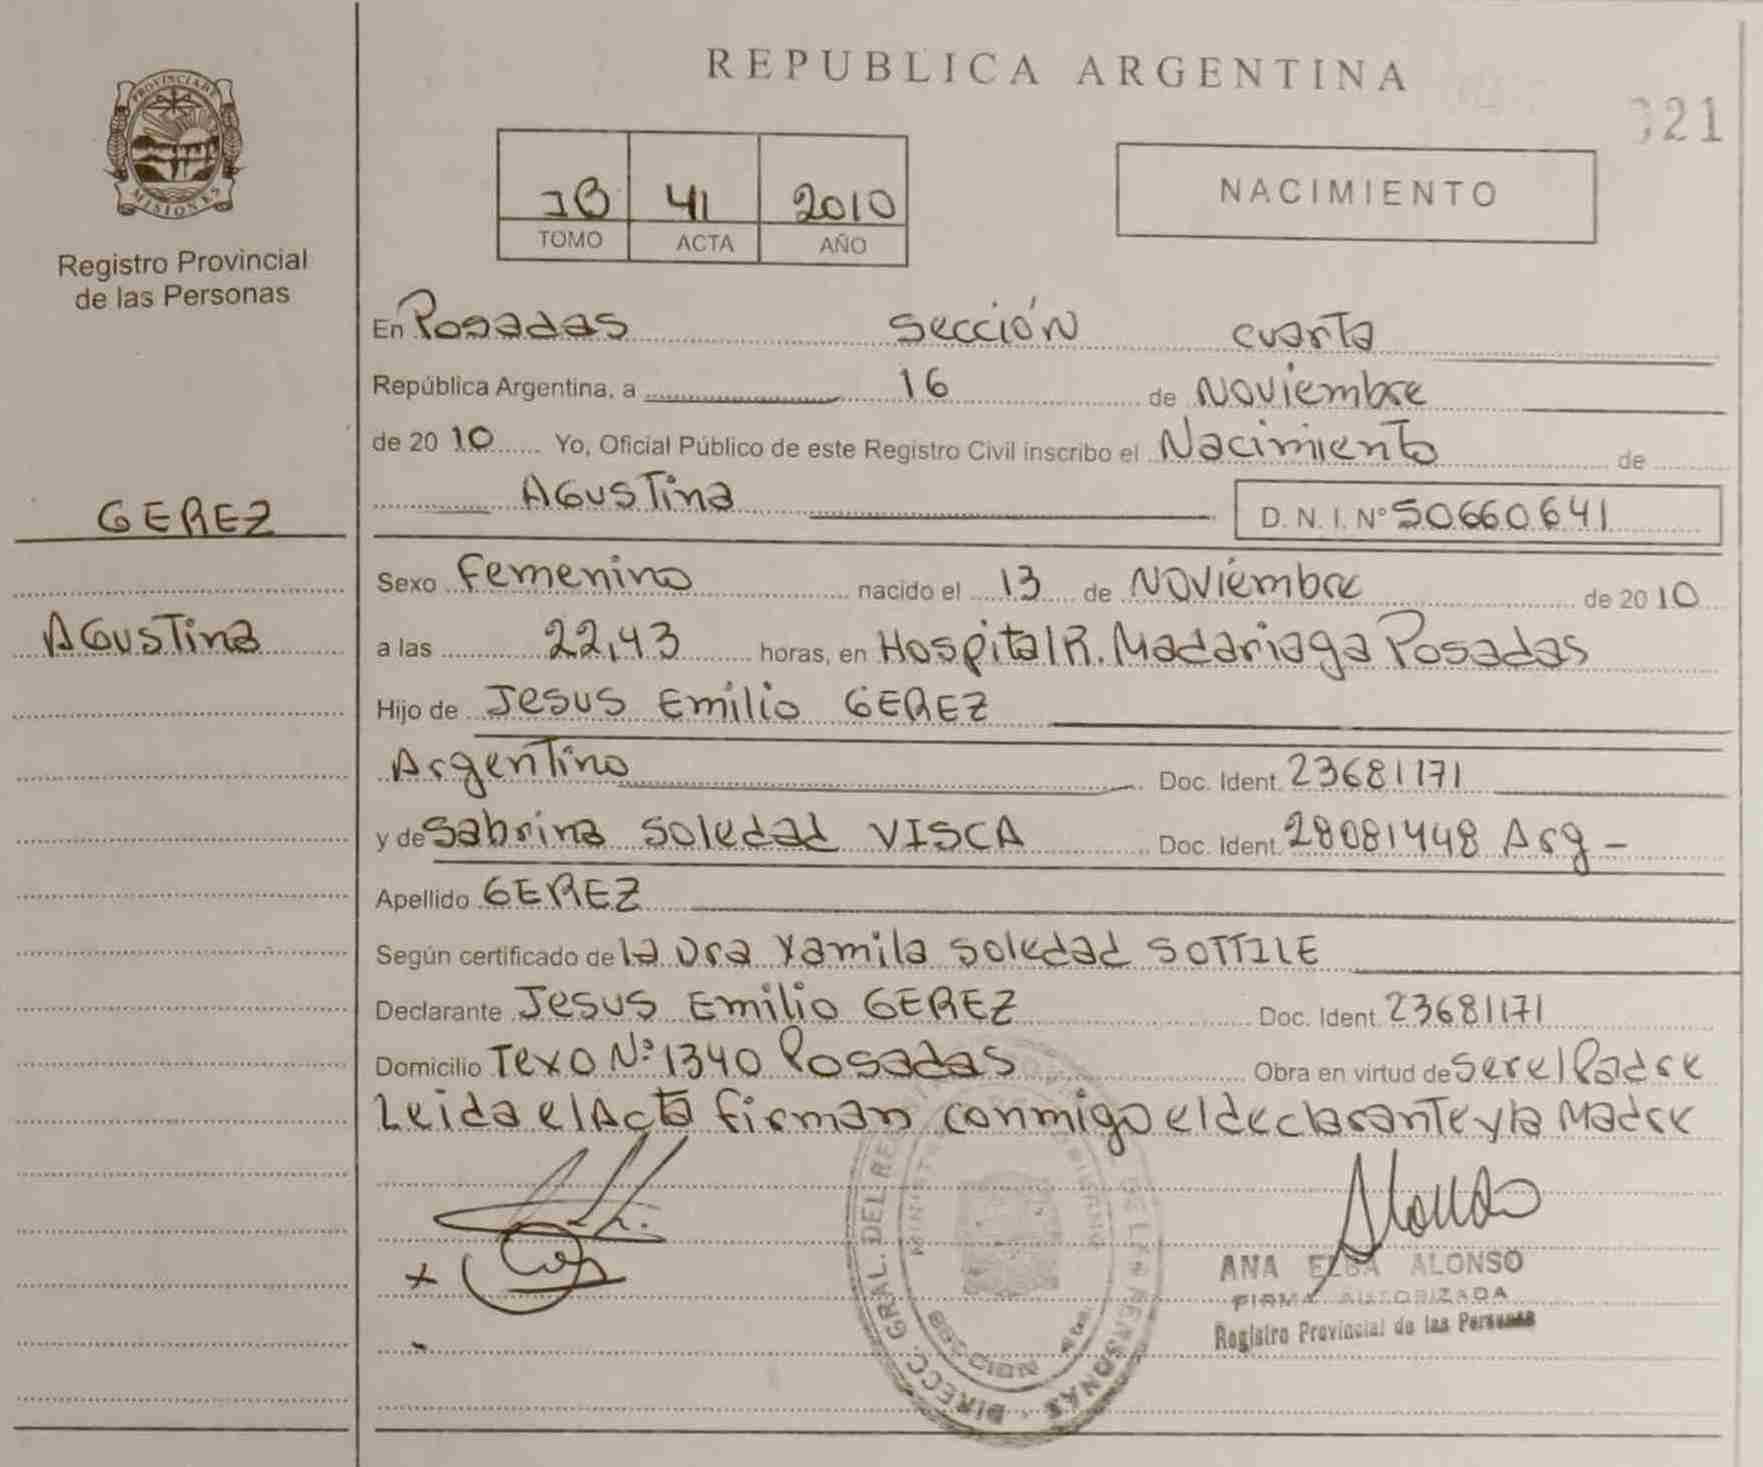 REPUBLICA ARGENTINA
21
PROVINCIA DE
MISIONES
Registro Provincial
de las Personas
41 2010
TOMO ACTA AÑO
NACIMIENTO
En Posadas sección cuarta
República Argentina, a 16 de Noviembre
de 20 10 Yo, Oficial Público de este Registro Civil inscribo el Nacimiento de
GEREZ
Agustina D. N. I. N° 50660641
Sexo Femenino nacido el 13 de Noviembre de 20 10
Agustina
a las 22,43 horas, en Hospital R. Madariaga Posadas
Hijo de Jesus Emilio GEREZ
Argentino Doc. Ident. 23681171
y de Sabrina Soledad VISCA Doc. Ident. 28081448 Arg -
Apellido GEREZ
Según certificado de la Dra Yamila Soledad SOTTILE
Declarante Jesus Emilio GEREZ Doc. Ident. 23681171
Domicilio Texo N° 1340 Posadas Obra en virtud de ser el Padre
Leida el Acta firman conmigo el declarante y la Madre
DIRECC. GRAL. DEL REG. DE LAS PERSONAS
ANA ELBA ALONSO
FIRMA AUTORIZADA
Registro Provincial de las Personas